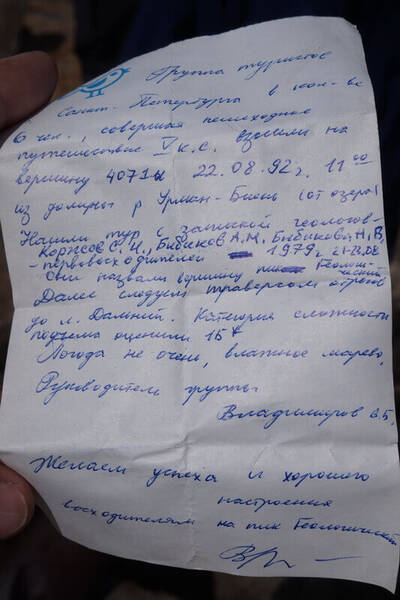 Группа туристов
Санкт-Петербурга в кол-ве
6 чел., совершая пешеходное
путешествие V к.с. взошли на
вершину 4071м 22.08.92г. 11⁰⁰
из долины р Урман- (от озера)
Нашли тур с запиской геологов-
Коржов С.Н., Бибиков А.М. Бибикова Н.В.
-первовосходителей 1979г. 21.08
Они назвали вершину пик Геологический
Далее следуем траверсом отрогов
до л. Дальний. Категория сложности
подъема оценили 1Б*
Погода не очень, влажное марево,
Руководитель группы
Владимиров В.Б.
Желаем успеха и хорошего
настроения
восходителям на пик Геологический